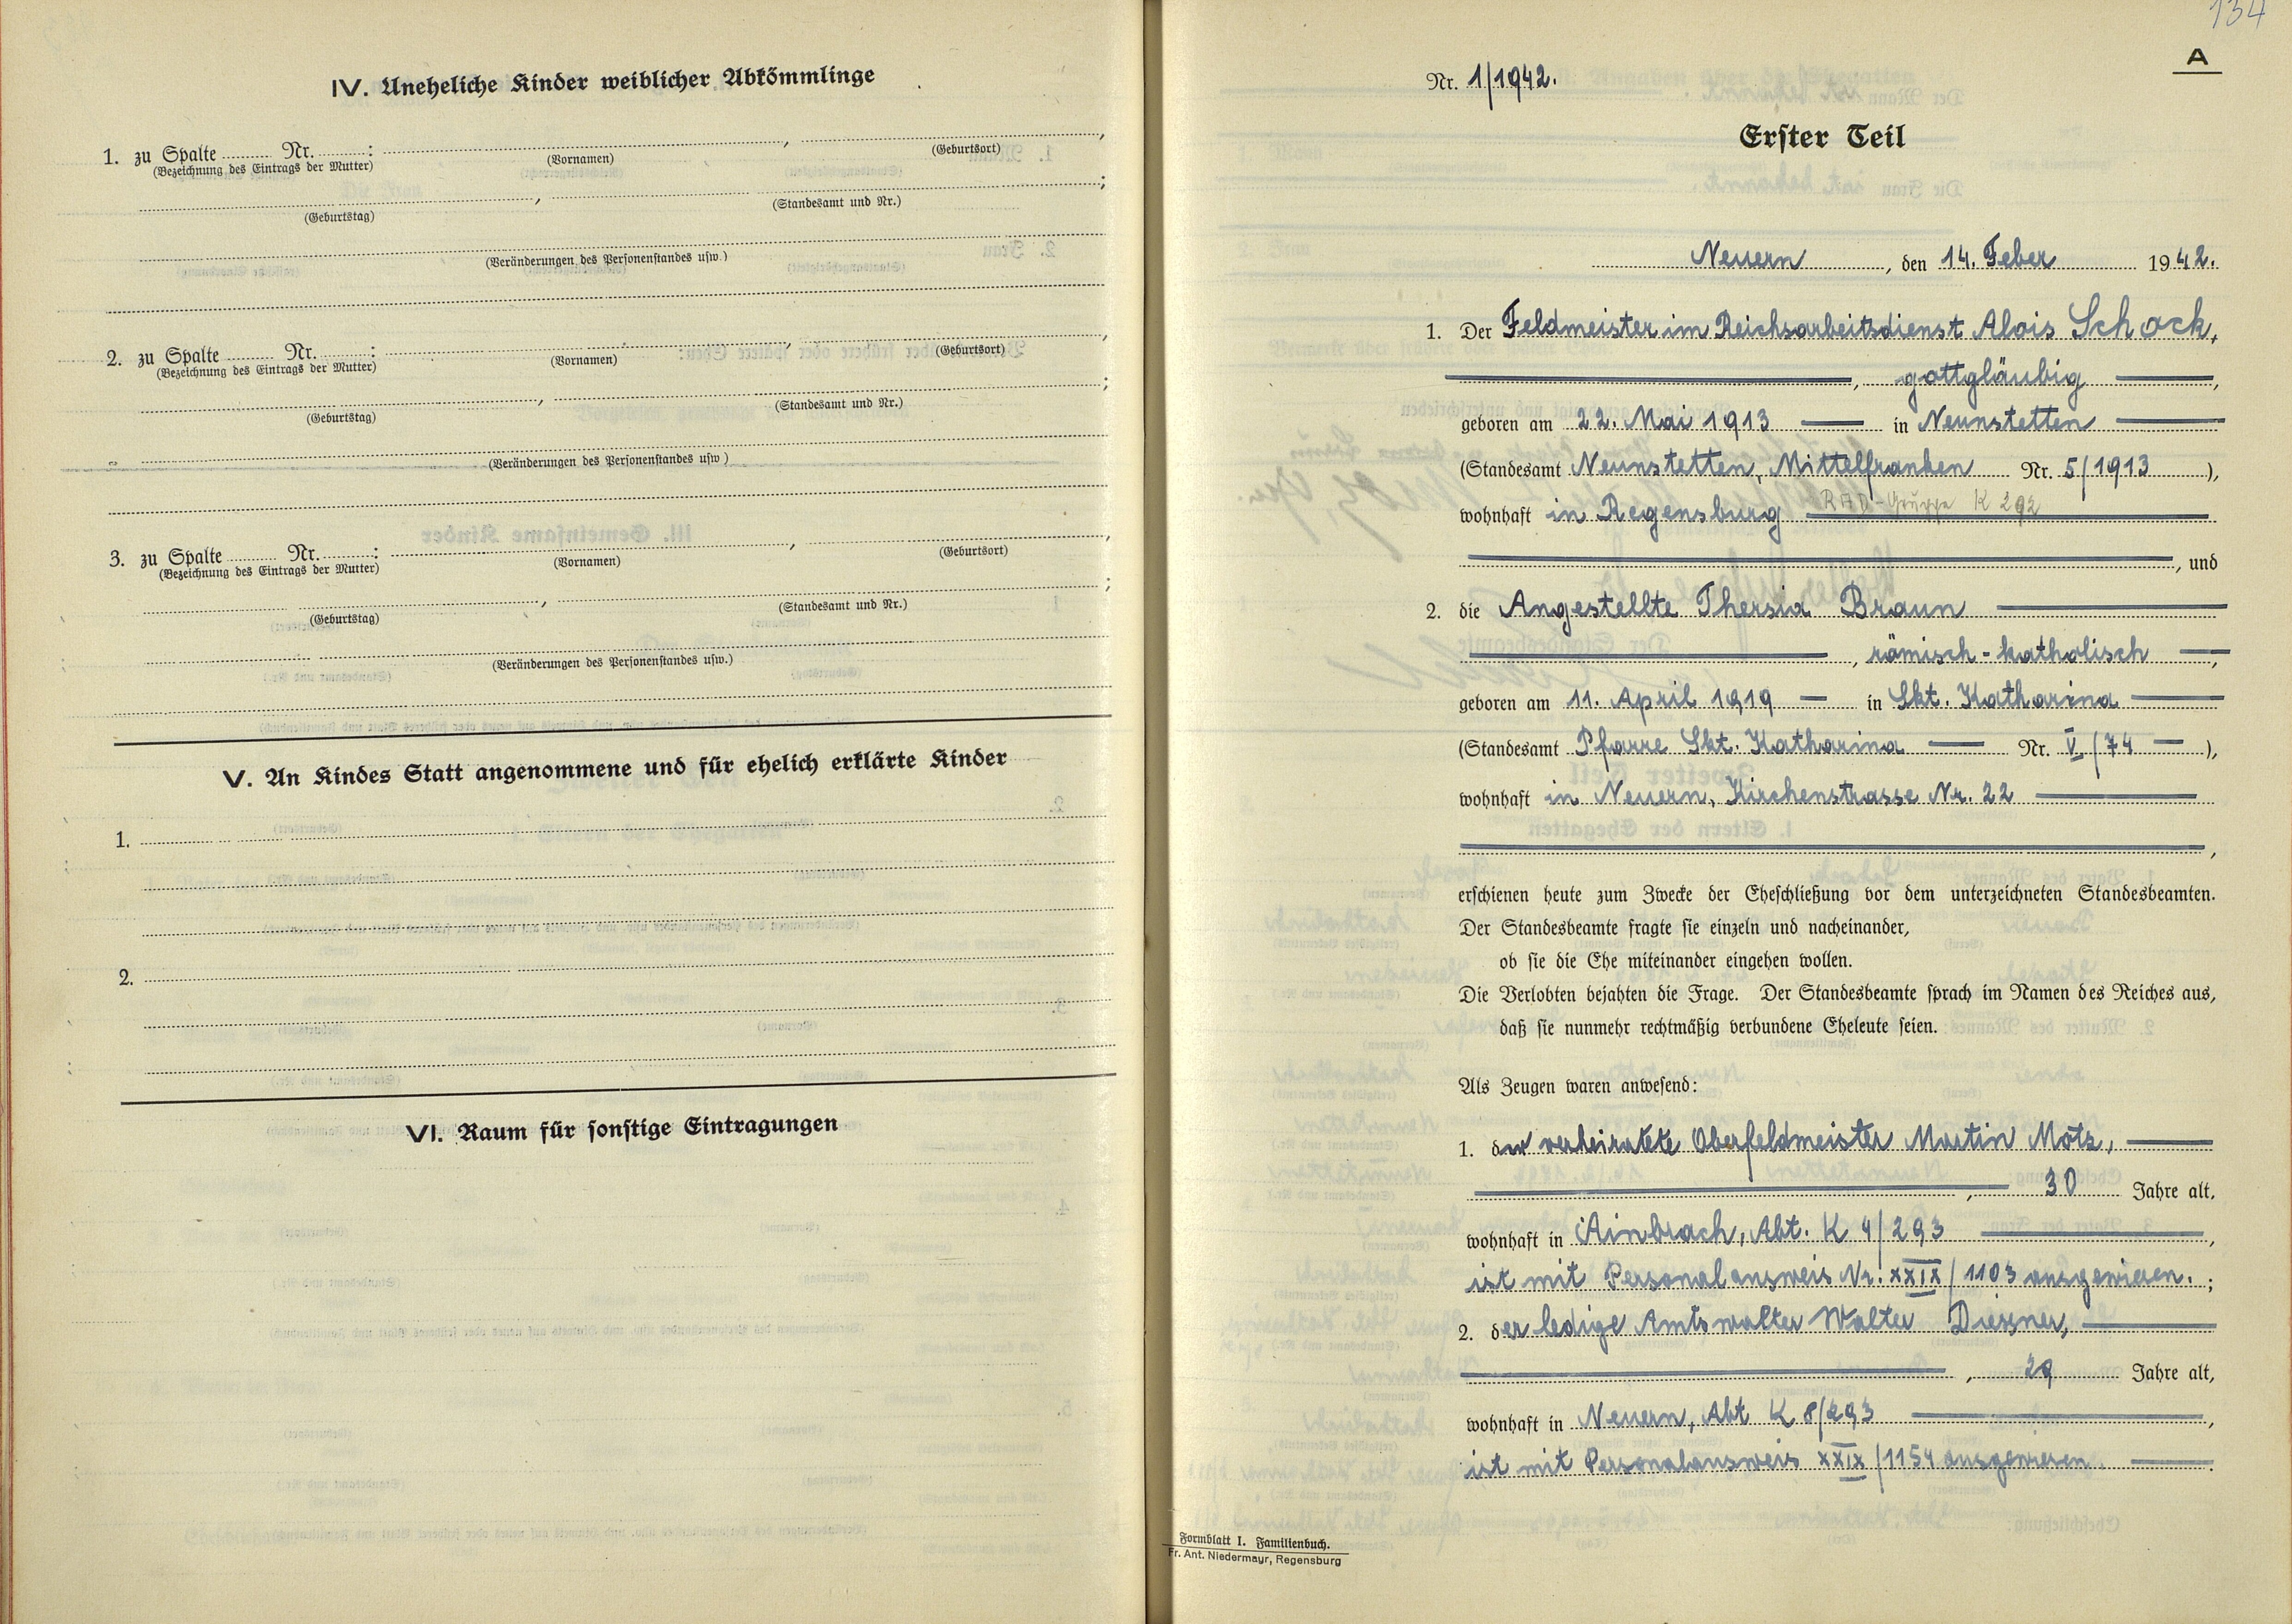 IV. Uneheliche Kinder weiblicher Abkömmlinge
1. zu Spalte ........ Nr. ........ :
(Bezeichnung des Eintrags der Mutter)
(Vornamen)
(Geburtsort)
(Geburtstag)
(Standesamt und Nr.)
(Veränderungen des Personenstandes usw.)
2. zu Spalte ........ Nr. ........ :
(Bezeichnung des Eintrags der Mutter)
(Vornamen)
(Geburtsort)
(Geburtstag)
(Standesamt und Nr.)
(Veränderungen des Personenstandes usw.)
3. zu Spalte ........ Nr. ........ :
(Bezeichnung des Eintrags der Mutter)
(Vornamen)
(Geburtsort)
(Geburtstag)
(Standesamt und Nr.)
(Veränderungen des Personenstandes usw.)
V. An Kindes Statt angenommene und für ehelich erklärte Kinder
1.
2.
VI. Raum für sonstige Eintragungen
134
A
Nr. 1/1942.
Erster Teil
Neuern, den 14. Feber 1942.
1. Der Feldmeister im Reichsarbeitsdienst Alois Schock,
, gottgläubig ,
geboren am 22. Mai 1913 in Neunstetten
(Standesamt Neunstetten, Mittelfranken Nr. 5/1913 ),
wohnhaft in Regensburg RAD-Gruppe K 292
, und
2. die Angestellte Thersia Braun
, römisch-katholisch ,
geboren am 11. April 1919 in Skt. Katharina
(Standesamt Pfarre Skt. Katharina Nr. V/74 ),
wohnhaft in Neuern, Kirchenstrasse Nr. 22
,
erschienen heute zum Zwecke der Eheschließung vor dem unterzeichneten Standesbeamten.
Der Standesbeamte fragte sie einzeln und nacheinander,
ob sie die Ehe miteinander eingehen wollen.
Die Verlobten bejahten die Frage. Der Standesbeamte sprach im Namen des Reiches aus,
daß sie nunmehr rechtmäßig verbundene Eheleute seien.
Als Zeugen waren anwesend:
1. der verheiratete Oberfeldmeister Martin Motz,
, 30 Jahre alt,
wohnhaft in Ainbrach, Abt. K 4/293 ,
ist mit Personalausweis Nr. XXIX/1103 ausgewiesen. ;
2. der ledige Amtswalter Walter
, Jahre alt,
wohnhaft in Neuern, Abt K 8/293 ,
ist mit Personalausweis XXIX/1154 ausgewiesen .
Formblatt I. Familienbuch.
Fr. Ant. Niedermayr, Regensburg